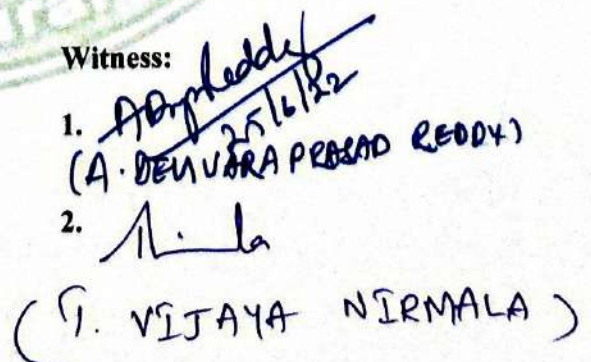 Witness:
1. ADVPReddy
25/6/22
(A. DEVIVARA PRASAD REDDY)
2.
(T. VIJAYA NIRMALA)